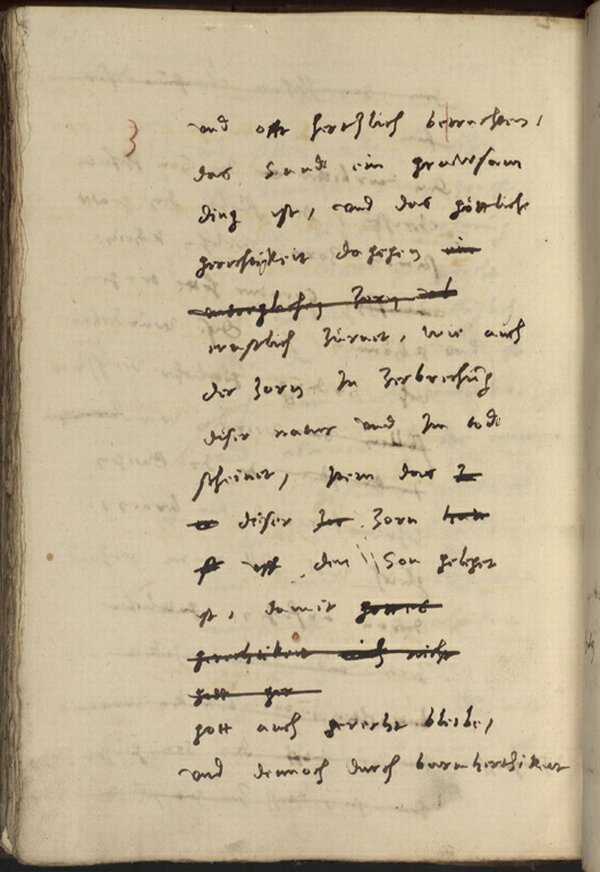 3
und offt hertzlich betrachten,
das Sunde ein grawsam
ding ist, und das göttliche
gerechtikeit dagegen ein
untreglichen Zorn
ernstlich Zürnet, wie auch
der Zorn In Zerbrechũg
diser natur und Im tode
scheinet, Item das
dieser Zorn
uff den Son geleget
ist, damit gottes
gerechtikeit nicht
gott ger
gott auch gerecht bleibe,
und dennoch durch barmhertzikeit